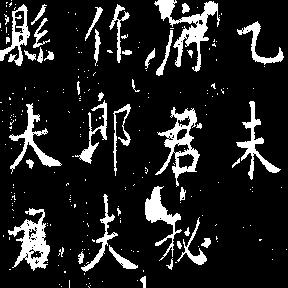 乙未
府君秘
作郎夫
縣太君